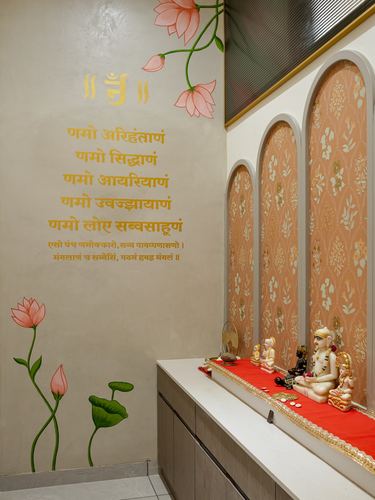 ॥ ॐ ॥
णमो अरिहंताणं
णमो सिद्धाणं
णमो आयरियाणं
णमो उवज्झायाणं
णमो लोए सव्वसाहूणं
एसो पंच णमोक्कारो, सव्व पावप्पणासणो ।
मंगलाणं च सव्वेसिं, पढमं हवइ मंगलं ॥